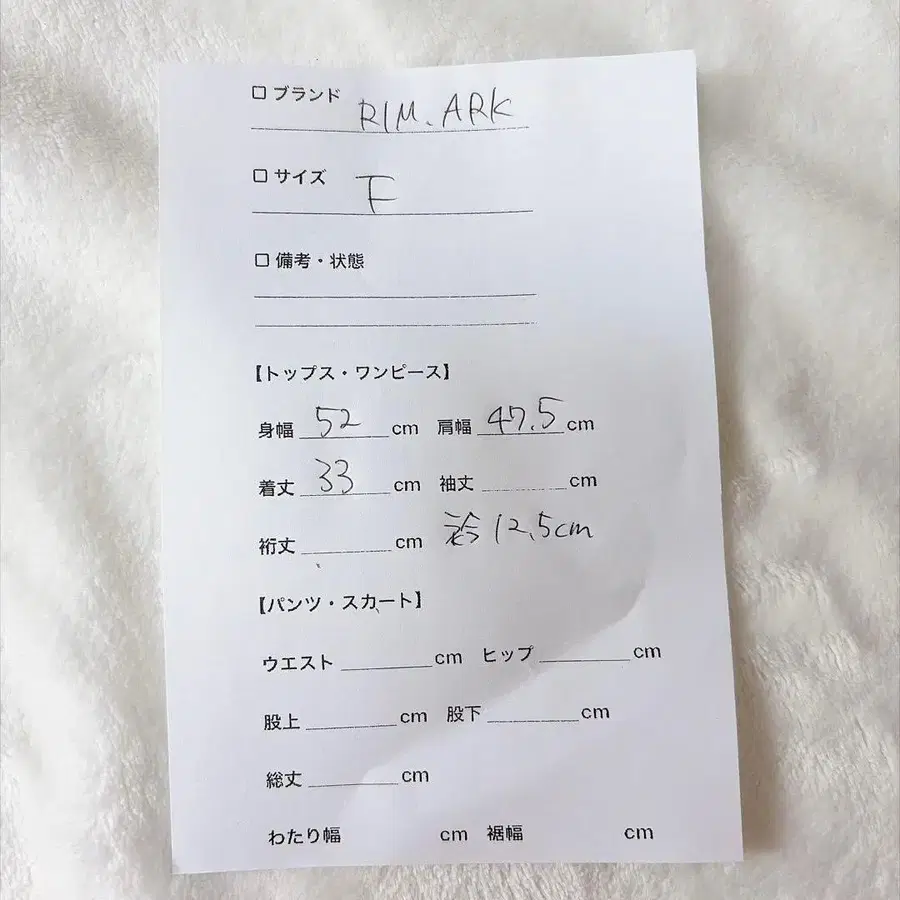 □ ブランド RIM.ARK
□ サイズ F
□ 備考・状態
【トップス・ワンピース】
身幅 52 cm 肩幅 47.5 cm
着丈 33 cm 袖丈 cm
裄丈 cm 衿 12.5cm
【パンツ・スカート】
ウエスト cm ヒップ cm
股上 cm 股下 cm
総丈 cm
わたり幅 cm 裾幅 cm